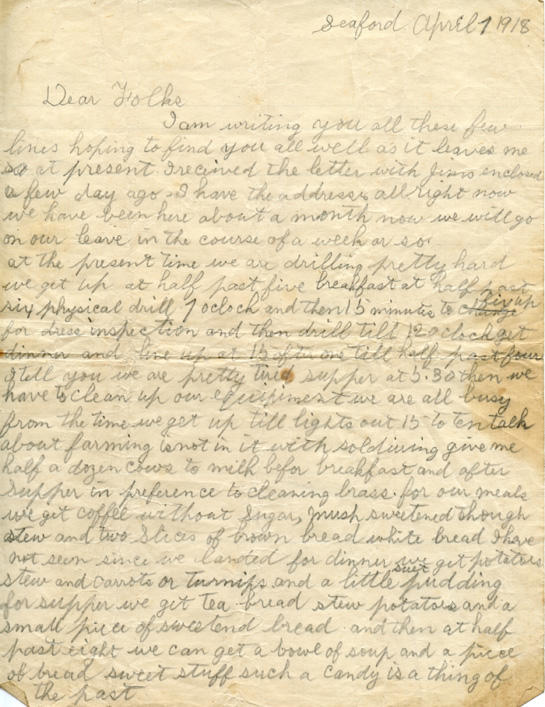 Seaford April 7 1918
Dear Folks
I am writing you all these few
lines hoping to find you all well as it leaves me
so at present. I recived the letter with Jim's enclosed
a few day ago. I have the address all right now
we have been here about a month now we will go
on our leave in the course of a week or so.
at the present time we are drilling pretty hard
we get up at half past five breakfast at half past
six physical drill 7 oclock and then 15 minutes to change
for dress inspection and then drill till 12 oclock get
dinner and line up at 15 after one till half past four
I tell you we are pretty tired supper at 5.30 then we
have to clean up our equipiment we are all busy
from the time we get up till lights out 15 to ten talk
about farming is not in it with soldiering give me
half a dozen cows to milk befor breakfast and after
supper in preference to cleaning brass. for our meals
we get coffee without sugar, mush sweetened though
stew and two slices of brown bread white bread I have
not seen since we landed for dinner we get potatoes
stew and carrots or turnips and a little suet pudding
for supper we get tea bread stew potatoes and a
small piece of sweetend bread and then at half
past eight we can get a bowl of soup and a piece
of bread sweet stuff such a candy is a thing of
the past